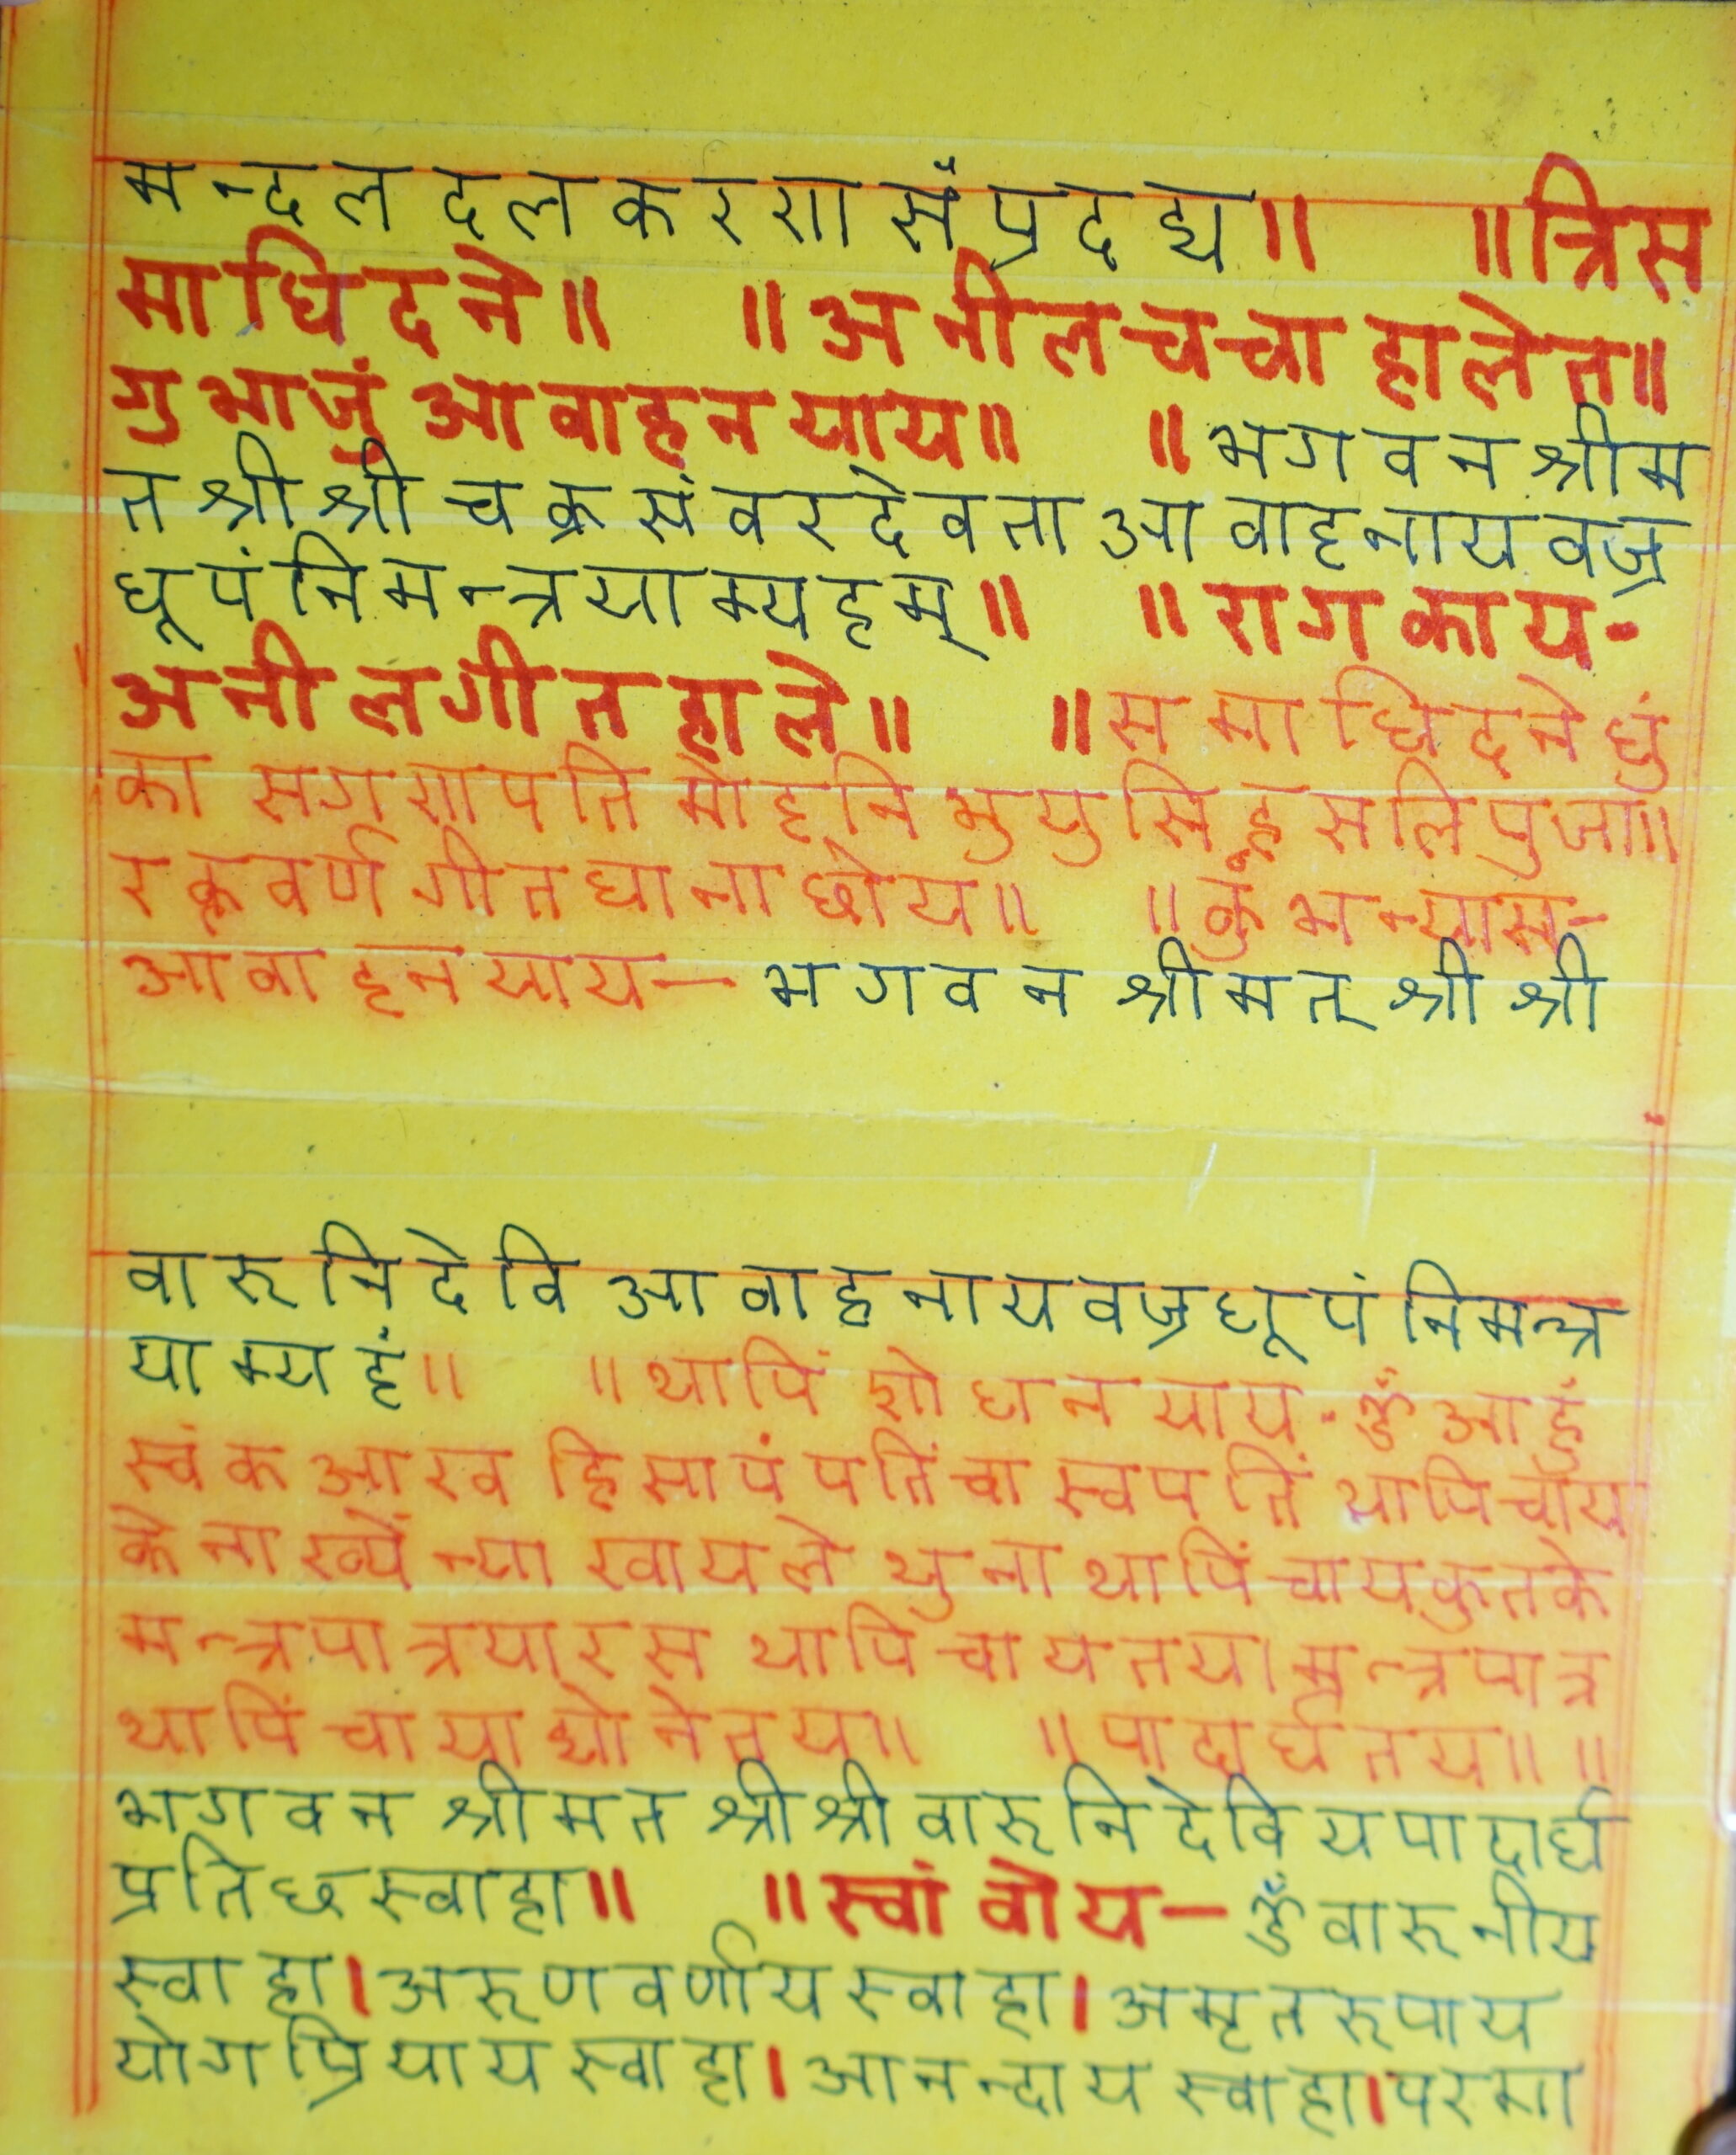 मन्दलदलकरणासँप्रदद्य॥ ॥त्रिस
माधिदने॥ ॥अनीलचचाहालेत॥
गुभाजुं आवाहनयाय॥ ॥भगवनश्रीम
तश्रीश्रीचक्रसंवरदेवताआवाहनायवज्र
धूपंनिमन्त्रयाम्यहम्॥ ॥रागकाय-
अनीलगीतहाले॥ ॥समाधिदनेधुं
का सगणपतिमोहनिभुयुसिंहसलिपुजा॥
रक्तवर्णगीतघानाछोय॥ ॥कुंभन्यास-
आवाहनयाय- भगवनश्रीमत्श्रीश्री
वारुनिदेविआवाहनायवज्रधूपंनिमन्त्र
याम्यहं॥ ॥थापिंशोधनयाय-ॐआहुं
स्वंकआखहिसापंपतिंचास्वपतिंथापिचाय
केनाख्येंन्याखायलेथुनाथापिंचायकुतके
मन्त्रपात्रयारसथापिंचायतयामन्त्रपात्र
थापिंचायाद्योनेतय॥ ॥पादार्घतय॥ ॥
भगवनश्रीमतश्रीश्रीवारुनिदेवियपादार्घ
प्रतिछस्वाहा॥ ॥स्वां वोय- ॐवारुनीय
स्वाहा।अरुणवर्णायस्वाहा।अमृतरुपाय
योगप्रियायस्वाहा।आनन्दायस्वाहा।परमा